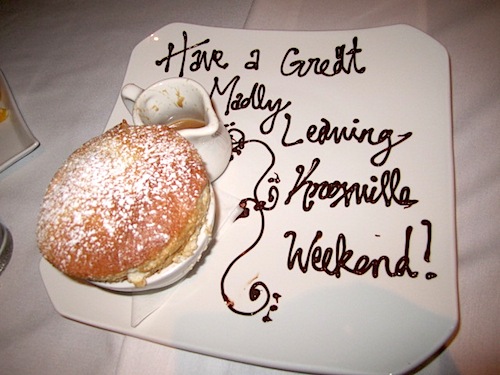 Have a Great
Madly
Leaving
Knoxville
Weekend!